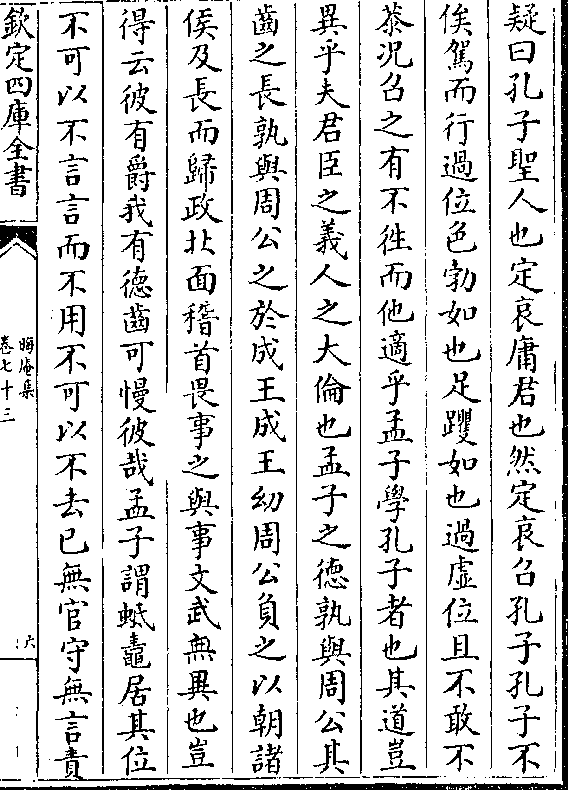 疑曰孔子聖人也定哀庸君也然定哀召孔子孔子不
俟駕而行過位色勃如也足躩如也過虛位且不敢不
恭况召之有不徃而他適乎孟子學孔子者也其道豈
異乎夫君臣之義人之大倫也孟子之徳孰與周公其
齒之長孰與周公之於成王成王幼周公負之以朝諸
侯及長而歸政北面稽首畏事之與事文武無異也豈
得云彼有爵我有德齒可慢彼哉孟子謂蚳鼃居其位
不可以不言言而不用不可以不去已無官守無言責
欽定四庫全書
晦庵集
卷七十三
六